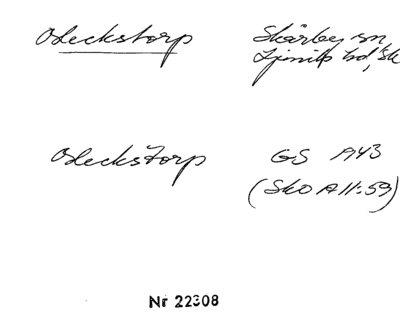 Oleckstorp Skårby sn
Ljunits hd, Sk
Oleckstorp GS 1943
(Sko A II:59)
Nr 22308